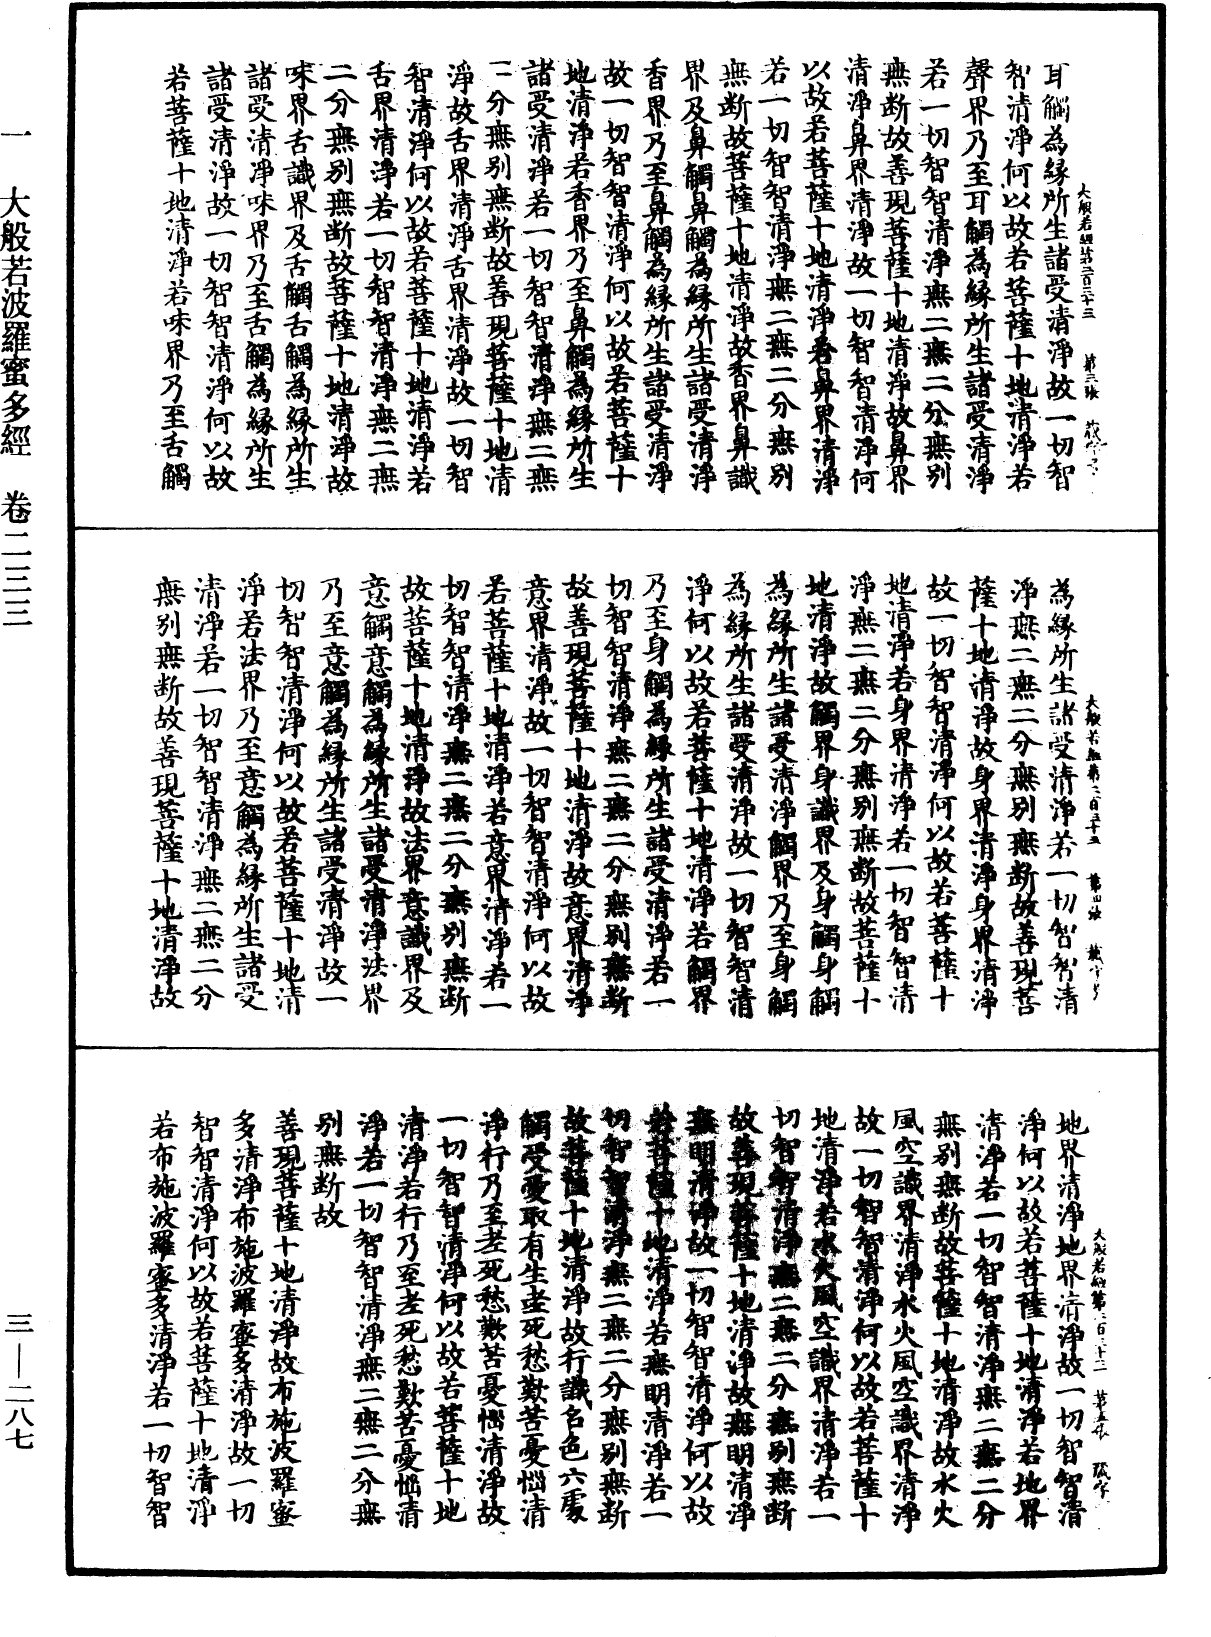 耳觸為緣所生諸受清淨故一切智
智清淨何以故若菩薩十地清淨若
聲界乃至耳觸為緣所生諸受清淨
若一切智智清淨無二無二分無別
無斷故善現菩薩十地清淨故鼻界
清淨鼻界清淨故一切智智清淨何
以故若菩薩十地清淨若鼻界清淨
若一切智智清淨無二無二分無別
無斷故菩薩十地清淨故香界鼻識
界及鼻觸鼻觸為緣所生諸受清淨
香界乃至鼻觸為緣所生諸受清淨
故一切智智清淨何以故若菩薩十
地清淨若香界乃至鼻觸為緣所生
諸受清淨若一切智智清淨無二無
二分無別無斷故善現菩薩十地清
淨故舌界清淨舌界清淨故一切智
智清淨何以故若菩薩十地清淨若
舌界清淨若一切智智清淨無二無
二分無別無斷故菩薩十地清淨故
味界舌識界及舌觸舌觸為緣所生
諸受清淨味界乃至舌觸為緣所生
諸受清淨故一切智智清淨何以故
若菩薩十地清淨若味界乃至舌觸
大般若經第二百三十三 第三張
為緣所生諸受清淨若一切智智清
淨無二無二分無別無斷故善現菩
薩十地清淨故身界清淨身界清淨
故一切智智清淨何以故若菩薩十
地清淨若身界清淨若一切智智清
淨無二無二分無別無斷故菩薩十
地清淨故觸界身識界及身觸身觸
為緣所生諸受清淨觸界乃至身觸
為緣所生諸受清淨故一切智智清
淨何以故若菩薩十地清淨若觸界
乃至身觸為緣所生諸受清淨若一
切智智清淨無二無二分無別無斷
故善現菩薩十地清淨故意界清淨
意界清淨故一切智智清淨何以故
若菩薩十地清淨若意界清淨若一
切智智清淨無二無二分無別無斷
故菩薩十地清淨故法界意識界及
意觸意觸為緣所生諸受清淨法界
乃至意觸為緣所生諸受清淨故一
切智智清淨何以故若菩薩十地清
淨若法界乃至意觸為緣所生諸受
清淨若一切智智清淨無二無二分
無別無斷故善現菩薩十地清淨故
大般若經第二百三十三 第四張
地界清淨地界清淨故一切智智清
淨何以故若菩薩十地清淨若地界
清淨若一切智智清淨無二無二分
無別無斷故菩薩十地清淨故水火
風空識界清淨水火風空識界清淨
故一切智智清淨何以故若菩薩十
地清淨若水火風空識界清淨若一
切智智清淨無二無二分無別無斷
故善現菩薩十地清淨故無明清淨
無明清淨故一切智智清淨何以故
若菩薩十地清淨若無明清淨若一
切智智清淨無二無二分無別無斷
故菩薩十地清淨故行識名色六處
觸受愛取有生老死愁歎苦憂惱清
淨行乃至老死愁歎苦憂惱清淨故
一切智智清淨何以故若菩薩十地
清淨若行乃至老死愁歎苦憂惱清
淨若一切智智清淨無二無二分無
別無斷故
善現菩薩十地清淨故布施波羅蜜
多清淨布施波羅蜜多清淨故一切
智智清淨何以故若菩薩十地清淨
若布施波羅蜜多清淨若一切智智
大般若經第二百三十三 第五張
一 大般若波羅蜜多經 卷二三三
三—二八七